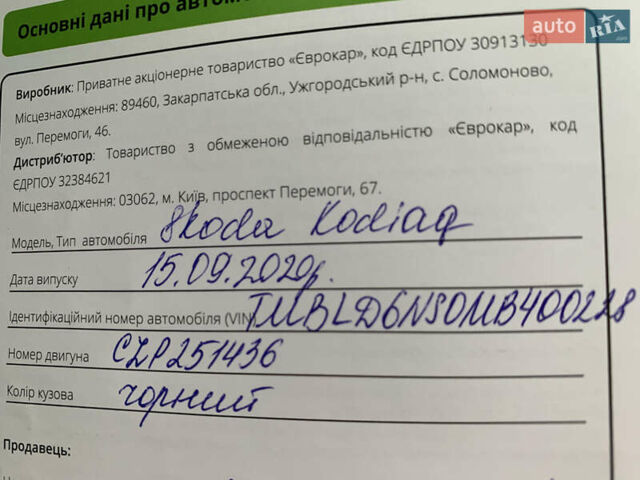 auto RIA
Основні дані про автомо
Виробник: Приватне акціонерне товариство «Єврокар», код ЄДРПОУ 30913130
Місцезнаходження: 89460, Закарпатська обл., Ужгородський р-н, с. Соломоново,
вул. Перемоги, 46.
Дистриб'ютор: Товариство з обмеженою відповідальністю «Єврокар», код
ЄДРПОУ 32384621
Місцезнаходження: 03062, м. Київ, проспект Перемоги, 67.
Модель, Тип автомобіля Skoda Kodiaq
Дата випуску 15.09.2020р.
Ідентифікаційний номер автомобіля (VIN) TMBLD6NS0MB400228
Номер двигуна CZP251436
Колір кузова чорний
Продавець: